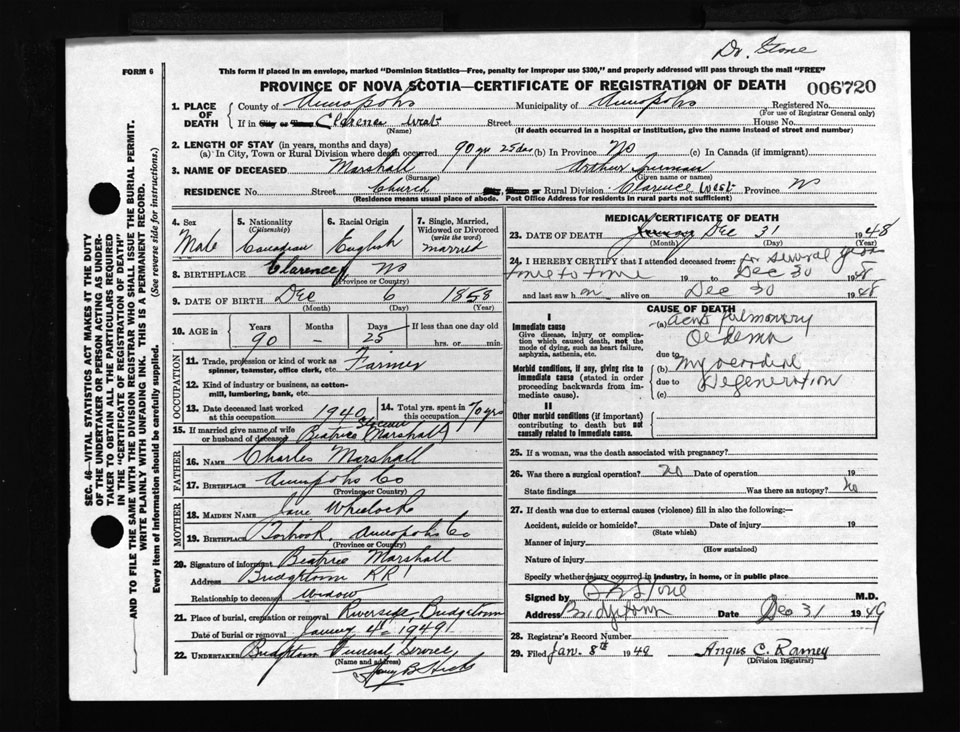 Dr. Stone
FORM 6
This form if placed in an envelope, marked "Dominion Statistics—Free, penalty for improper use $300," and properly addressed will pass through the mail "FREE"
PROVINCE OF NOVA SCOTIA—CERTIFICATE OF REGISTRATION OF DEATH 006720
1. PLACE OF DEATH { County of Annapolis Municipality of Annapolis Registered No.
(For use of Registrar General only)
If in City or Town Clarence West Street House No.
(Name) (If death occurred in a hospital or institution, give the name instead of street and number)
2. LENGTH OF STAY (in years, months and days)
(a) In City, Town or Rural Division where death occurred 90 yrs 25 das (b) In Province (c) In Canada (if immigrant)
3. NAME OF DECEASED Marshall Arthur
(Surname) (Given name or names)
RESIDENCE No. Street Church Rural Division Clarence West Province NS
(Residence means usual place of abode. Post Office Address for residents in rural parts not sufficient)
4. Sex Male
5. Nationality (Citizenship) Canadian
6. Racial Origin English
7. Single, Married, Widowed or Divorced (write the word) married
8. BIRTHPLACE Clarence NS
(Province or Country)
9. DATE OF BIRTH Dec 6 1858
(Month) (Day) (Year)
10. AGE in Years 90 Months – Days 25 If less than one day old hrs. or min.
OCCUPATION
11. Trade, profession or kind of work as spinner, teamster, office clerk, etc. Farmer
12. Kind of industry or business, as cotton-mill, lumbering, bank, etc.
13. Date deceased last worked at this occupation 1940
14. Total yrs. spent in this occupation 70 yrs
15. If married give name of wife or husband of deceased Beatrice Marshall
FATHER
16. NAME Charles Marshall
17. BIRTHPLACE Annapolis Co
(Province or Country)
MOTHER
18. MAIDEN NAME Jane Wheelock
19. BIRTHPLACE Torbrook Annapolis Co
(Province or Country)
20. Signature of informant Beatrice Marshall
Address Bridgetown RR 1
Relationship to deceased widow
21. Place of burial, cremation or removal Riverside, Bridgetown
Date of burial or removal January 4th 1949
22. UNDERTAKER Bridgetown Funeral Service
(Name and address)
MEDICAL CERTIFICATE OF DEATH
23. DATE OF DEATH January Dec 31 1948
(Month) (Day) (Year)
24. I HEREBY CERTIFY that I attended deceased from: for several years
time to time 19 to Dec 30 1948
and last saw him alive on Dec 30 1948
CAUSE OF DEATH
I
Immediate cause
Give disease, injury or complication which caused death, not the mode of dying, such as heart failure, asphyxia, asthenia, etc.
(a) Acute Pulmonary Oedema
due to
Morbid conditions, if any, giving rise to immediate cause (stated in order proceeding backwards from immediate cause).
(b) Myocardial
due to Degeneration
(c)
II
Other morbid conditions (if important) contributing to death but not causally related to immediate cause.
25. If a woman, was the death associated with pregnancy?
26. Was there a surgical operation? no Date of operation 19
State findings Was there an autopsy? no
27. If death was due to external causes (violence) fill in also the following:—
Accident, suicide or homicide? Date of injury 19
(State which)
Manner of injury
(How sustained)
Nature of injury
Specify whether injury occurred in industry, in home, or in public place
Signed by Stone M.D.
Address Bridgetown Date Dec 31 1949
28. Registrar's Record Number
29. Filed Jan. 8th 1949 Angus C. Ramey
(Division Registrar)
SEC. 46—VITAL STATISTICS ACT MAKES IT THE DUTY
OF THE UNDERTAKER OR PERSON ACTING AS UNDERTAKER TO OBTAIN ALL THE PARTICULARS REQUIRED
IN THE "CERTIFICATE OF REGISTRATION OF DEATH"
AND TO FILE THE SAME WITH THE DIVISION REGISTRAR WHO SHALL ISSUE THE BURIAL PERMIT.
WRITE PLAINLY WITH UNFADING INK. THIS IS A PERMANENT RECORD.
Every item of information should be carefully supplied. (See reverse side for instructions.)